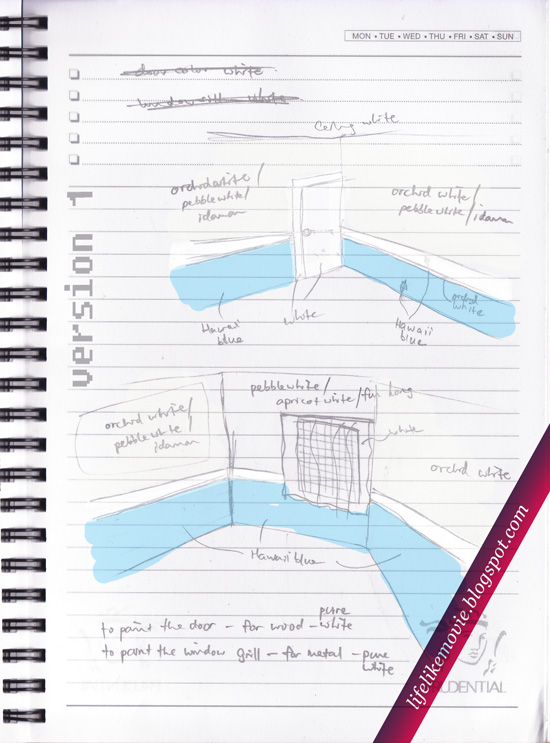 MON • TUE • WED • THU • FRI • SAT • SUN
door color white
white
Ceiling white
orchid white/
pebble white/
idaman
orchid white/
pebble white/
idaman
version 1
Hawaii
blue
white
Hawaii
blue
orchid
white
pebble white/
apricot white/
white
orchid white/
pebble white/
idaman
orchid white
Hawaii blue
to paint the door – for wood – pure
white
to paint the window grill – for metal – pure
white
UDENTIAL
lifelikemovie.blogspot.com